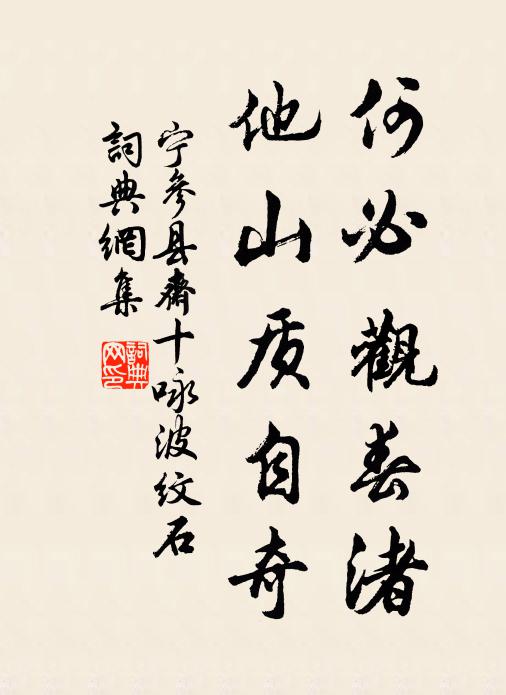 何必觀春渚
他山质自奇
宁參县齋十咏波纹石
詞典網集
詞典
网印